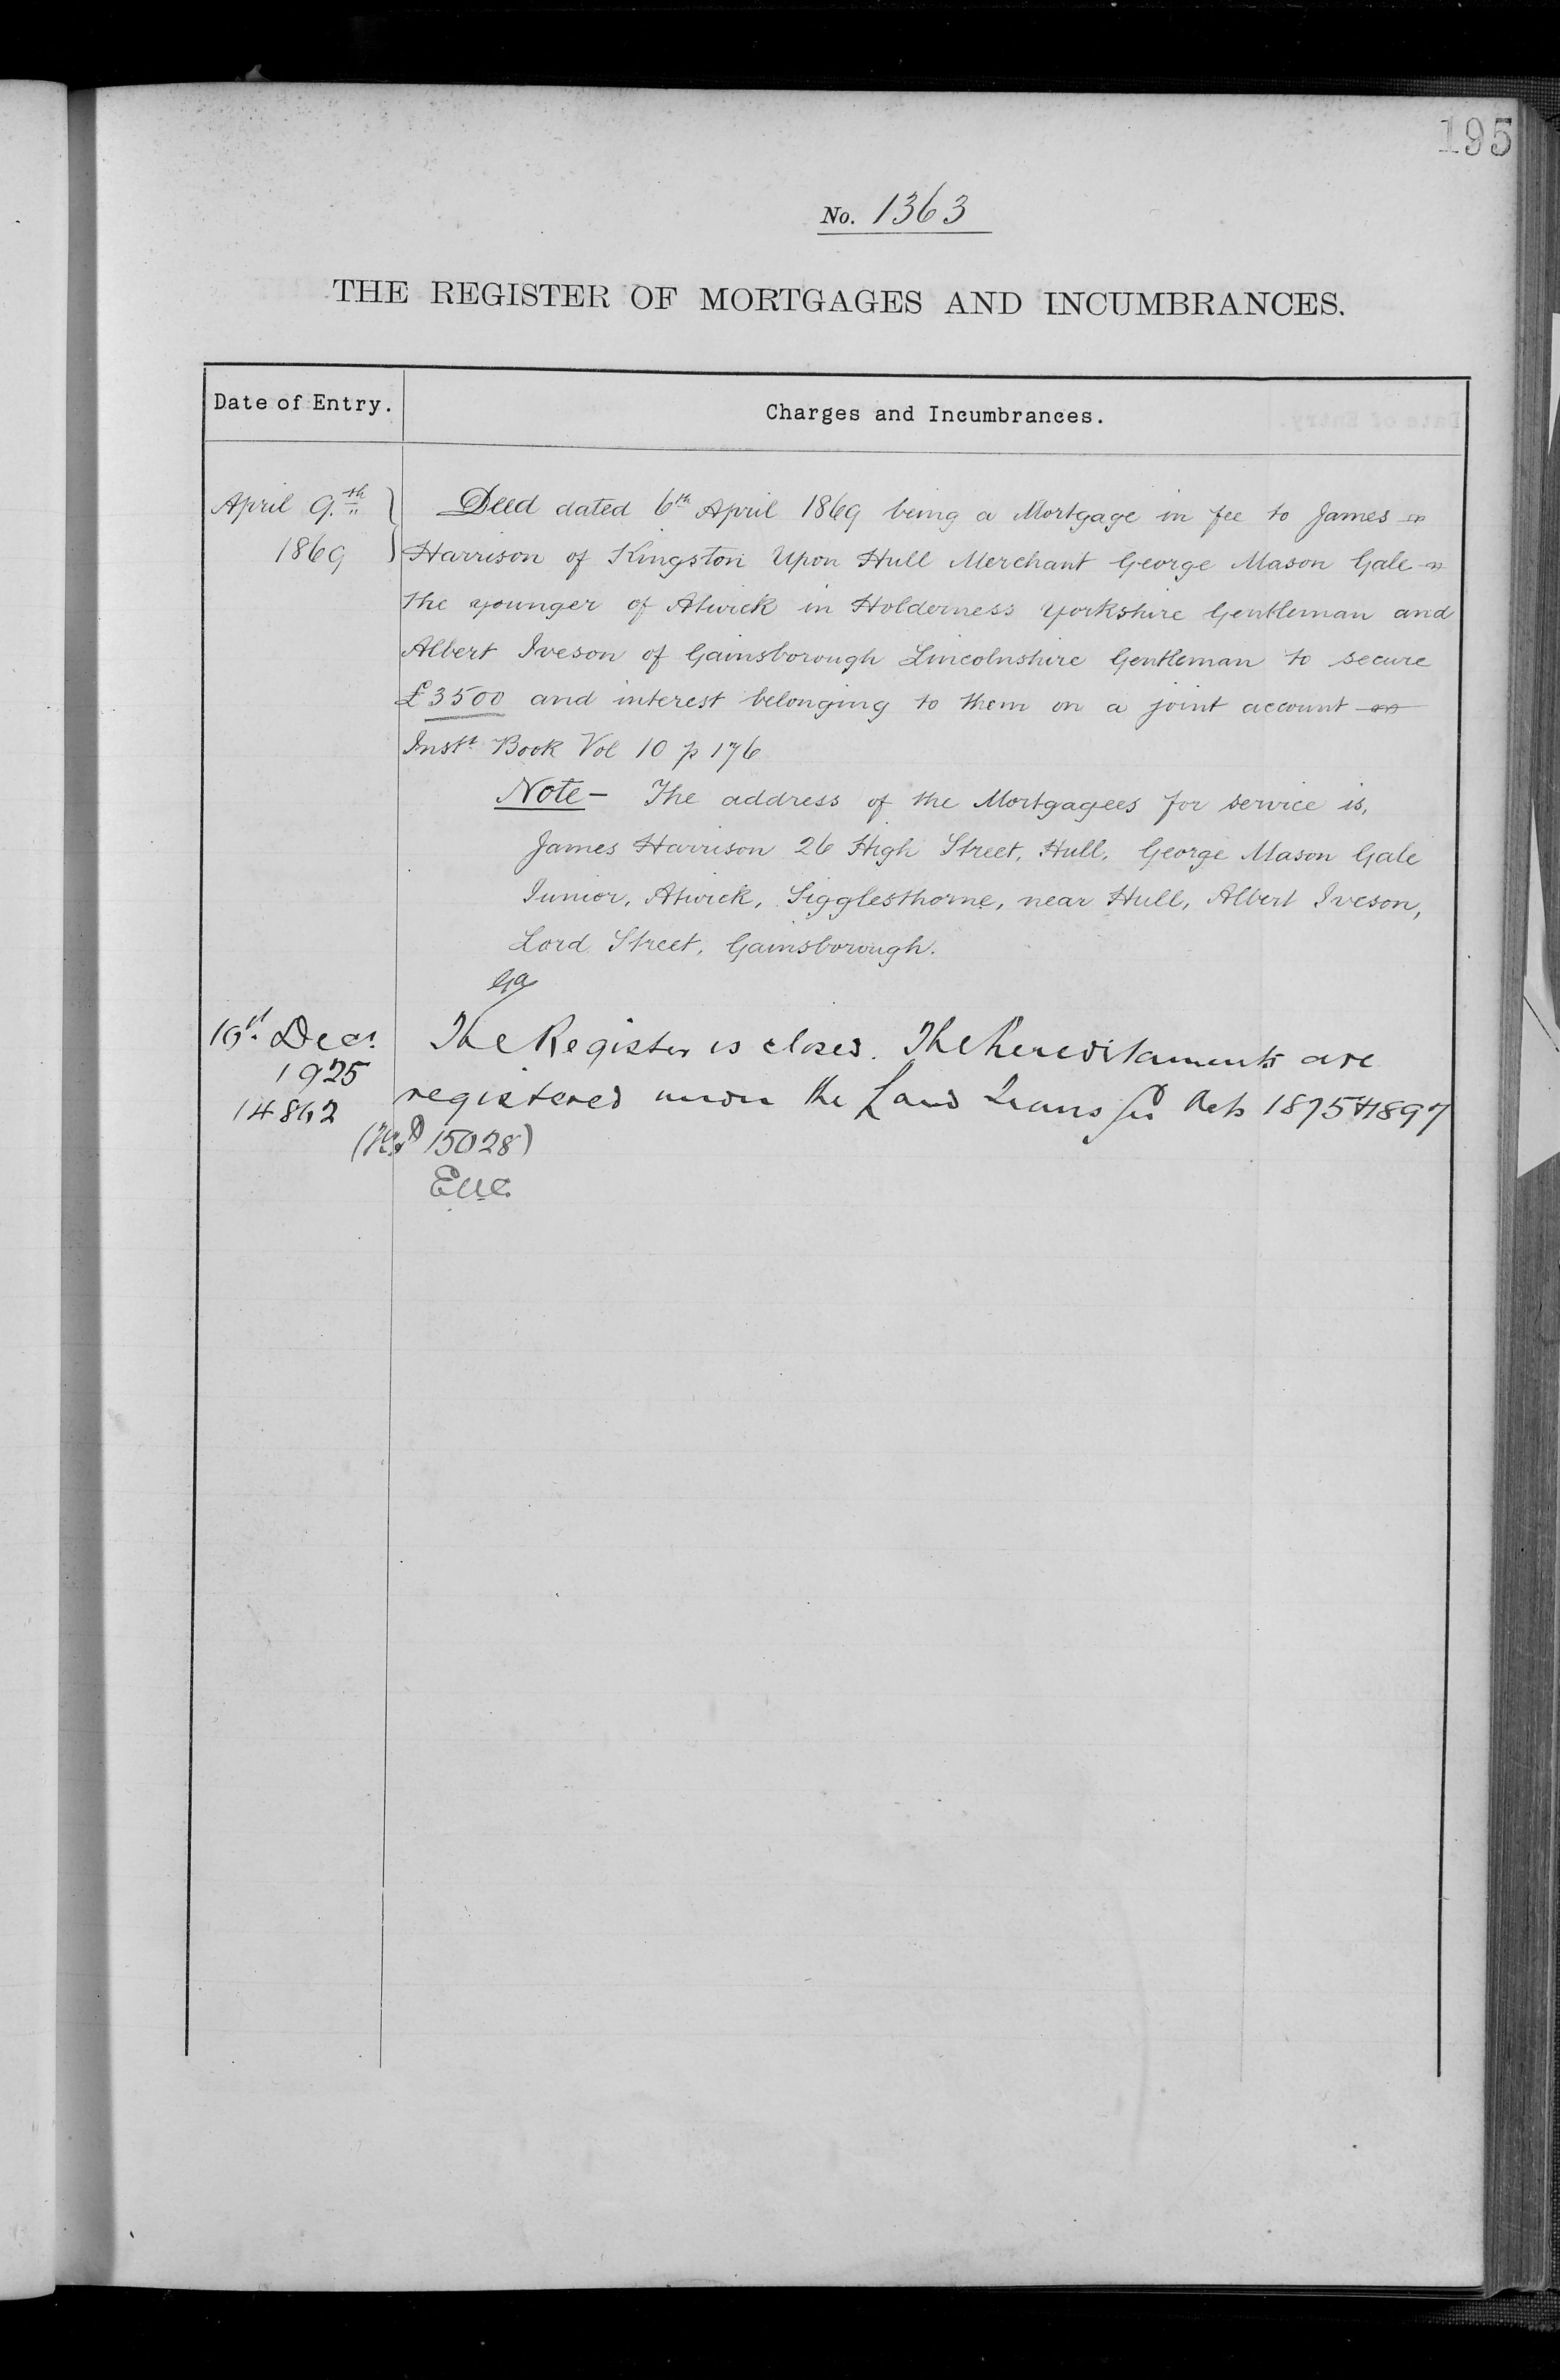 195
No. 1363
THE REGISTER OF MORTGAGES AND INCUMBRANCES.
Date of Entry.
Charges and Incumbrances.
April 9th
1869
Deed dated 6th April 1869 being a Mortgage in fee to James
Harrison of Kingston Upon Hull Merchant George Mason Gale
the younger of Atwick in Holderness Yorkshire Gentleman and
Albert Iveson of Gainsborough Lincolnshire Gentleman to secure
£3500 and interest belonging to them on a joint account
Inst. Book Vol 10 p 176
Note - The address of the Mortgagees for service is,
James Harrison 26 High Street, Hull, George Mason Gale
Junior, Atwick, Sigglesthorne, near Hull, Albert Iveson,
Lord Street, Gainsborough.
Decr
1925
14862
The Register is closed. The hereditaments are
registered under the Land Transfer Acts 1875 & 1897
15028)